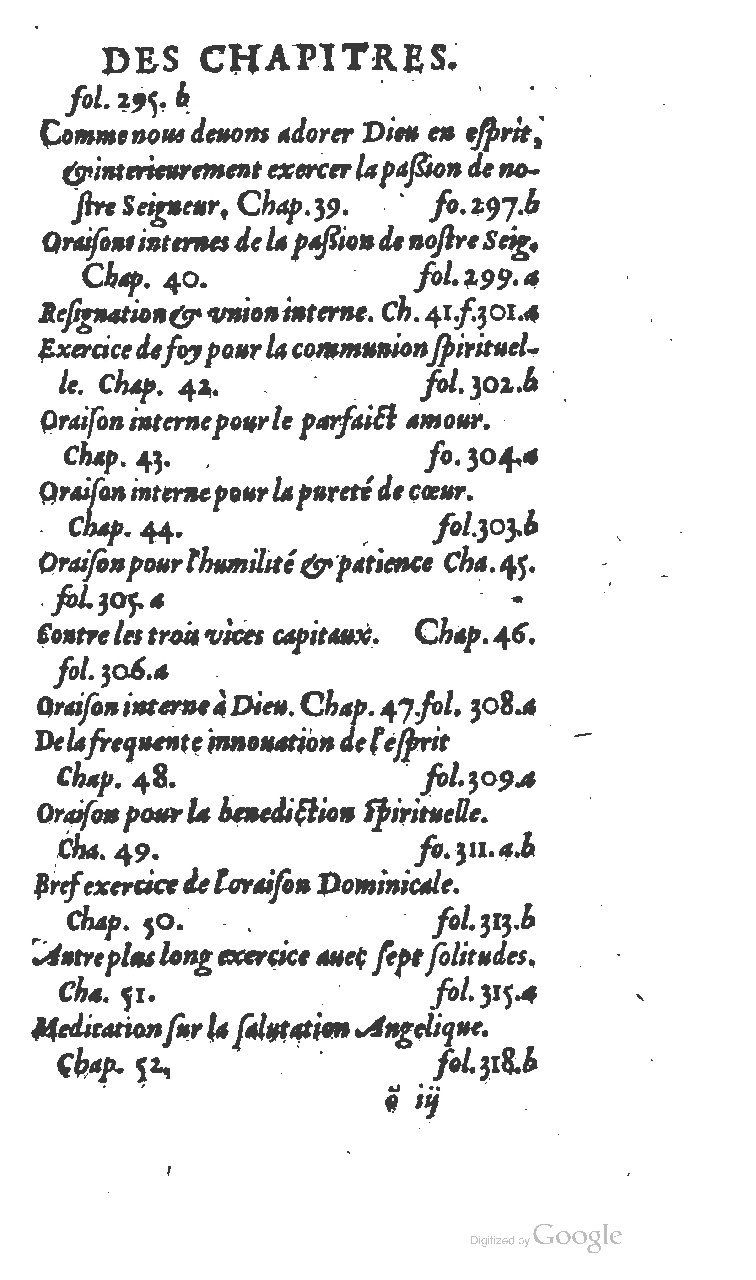 DES CHAPITRES.
fol. 295. b
Comme nous deuons adorer Dieu en esprit,
& interieurement exercer la paßion de no-
ſtre Seigneur, Chap. 39. fo. 297.b
Oraiſons internes de la paßion de noſtre Seig.
Chap. 40. fol. 299. a
Reſignation & vnion interne. Ch. 41. f. 301.a
Exercice de foy pour la communion ſpirituel-
le. Chap. 42. fol. 302.b
Oraiſon interne pour le parfaict amour.
Chap. 43. fo. 304.a
Oraiſon interne pour la pureté de cœur.
Chap. 44. fol. 303.b
Oraiſon pour l'humilité & patience Cha. 45.
fol. 305. a
Contre les trois vices capitaux. Chap. 46.
fol. 306.a
Oraiſon interne à Dieu. Chap. 47. fol. 308.a
De la frequente innouation de l'eſprit
Chap. 48. fol. 309.a
Oraiſon pour la benediction ſpirituelle.
Cha. 49. fo. 311. a.b
Bref exercice de l'oraiſon Dominicale.
Chap. 50. fol. 313.b
Autre plus long exercice auec ſept ſolitudes.
Cha. 51. fol. 315.a
Meditation ſur la ſalutation Angelique.
Chap. 52, fol. 318.b
õ iij
Digitized by Google